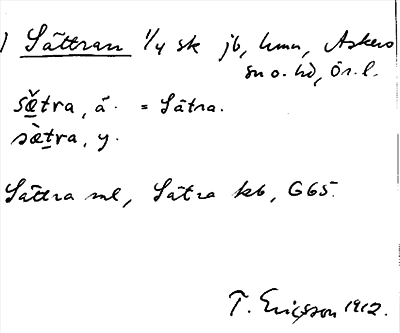 ) Sättran 1/4 sk jb, hmn, Askers
sn o. hd, Ör. l.
sæ̌tra, ä. = Sätra.
sæ̀tra, y.
Sättra ml, Sätra kb, G65.
T. Ericsson 1912.